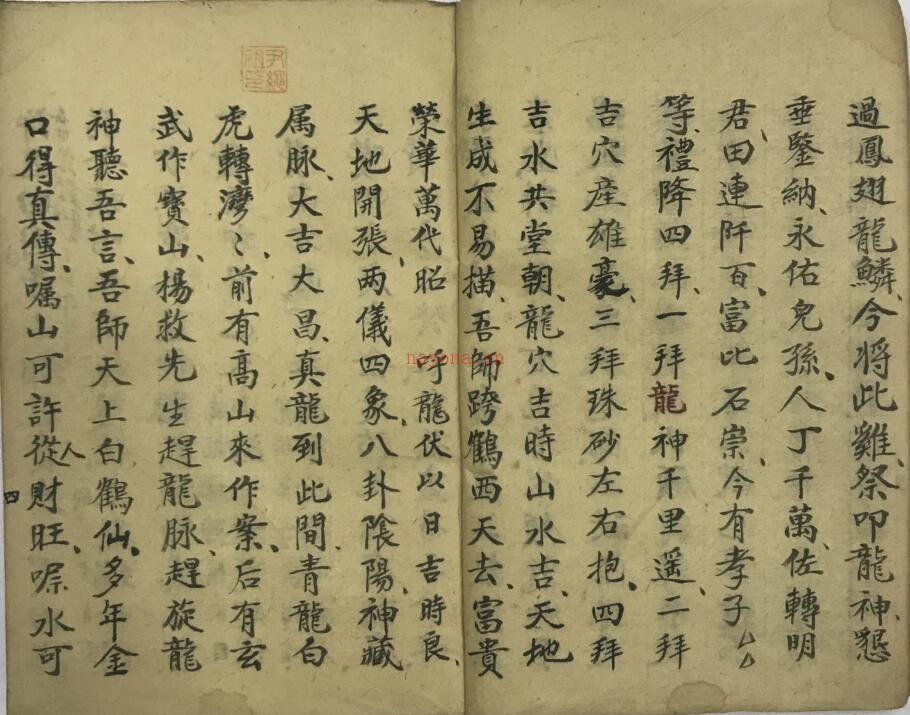 過鳳翅龍鱗、今将此雞、祭叩龍神、懇
垂鑒納、永佑兒孫、人丁千萬、佐轉明
君、田連阡百、富比石崇、今有孝子ムム
等、禮降四拜、一拜龍神千里遥、二拜
吉穴産雄豪、三拜珠砂左右抱、四拜
吉水共堂朝、龍穴吉時山水吉、天地
生成不易描、吾師跨鶴西天去、富貴
榮華萬代昭　呼龍伏以日吉時良、
天地開張、两儀四象、八卦陰陽、神藏
属脉、大吉大昌、真龍到此間、青龍白
虎轉灣〻、前有高山來作案、后有玄
武作寳山、楊救先生趕龍脉、趕旋龍
神聽吾言、吾師天上白鶴仙、多年金
口得真傳、嘱山可許從人財旺、嘱水可
四